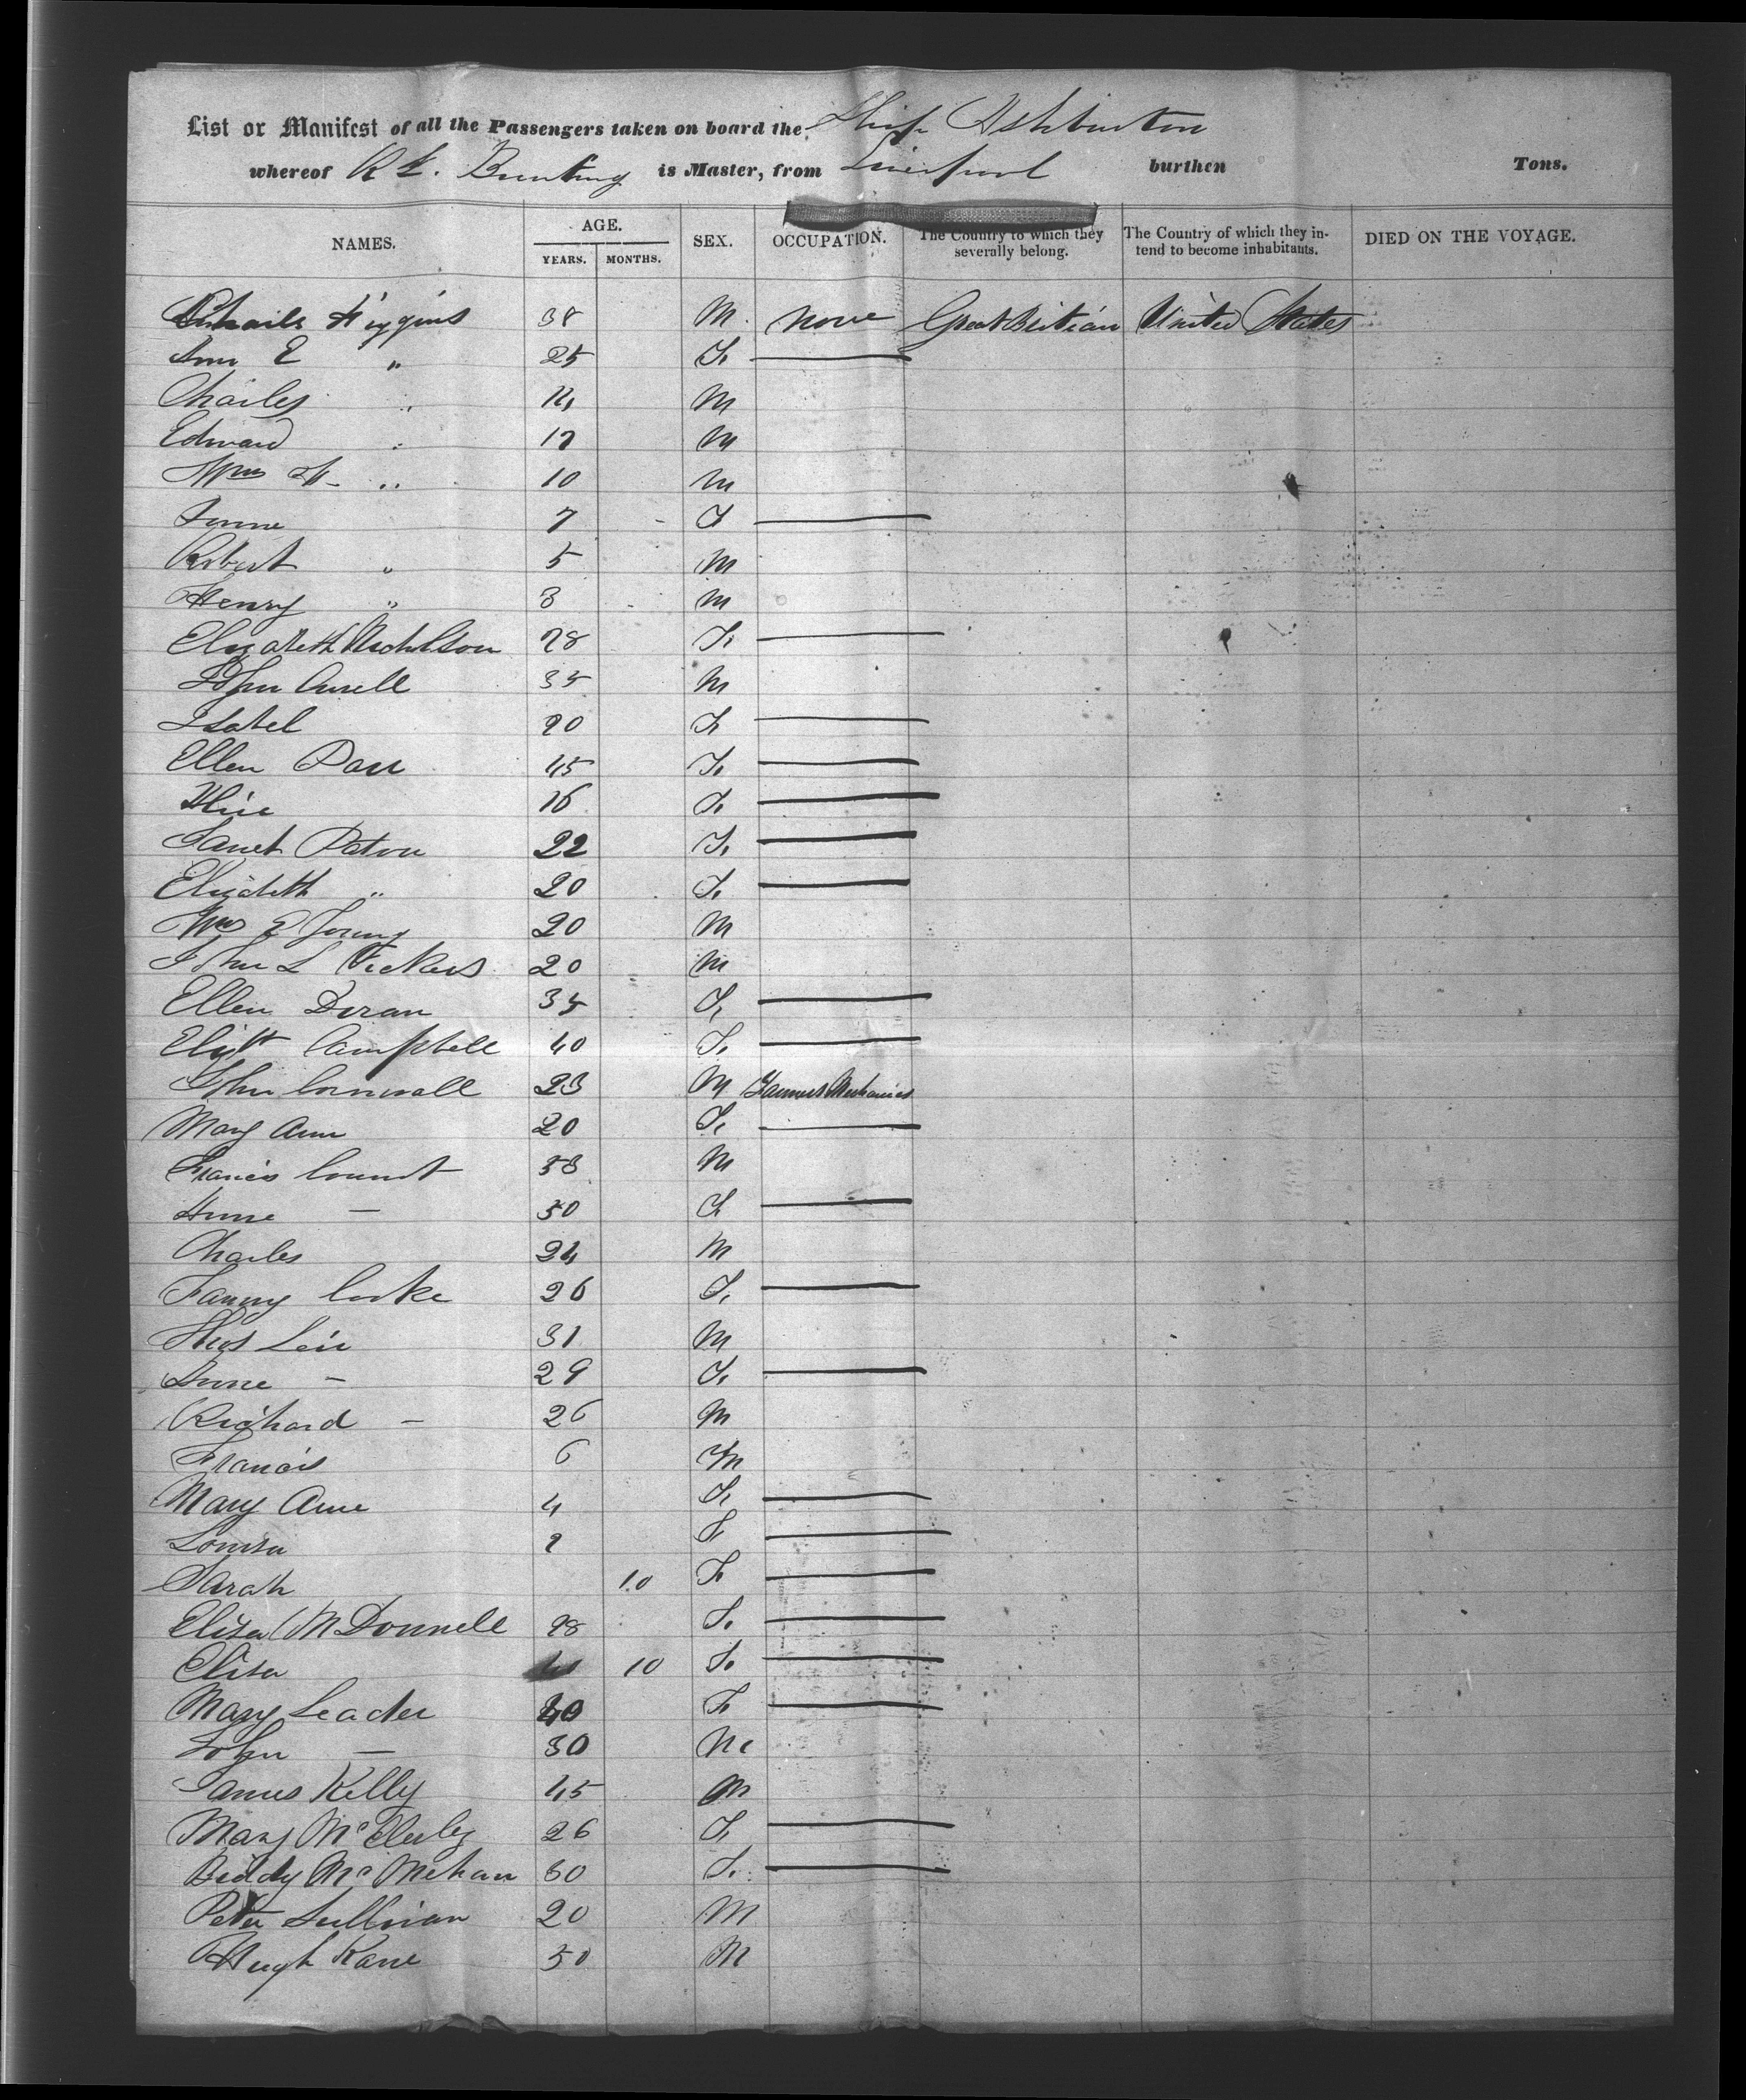 List or Manifest of all the Passengers taken on board the Ship Ashburton
whereof R L. Bunting is Master, from Liverpool burthen Tons.
NAMES. AGE. YEARS. MONTHS. SEX. OCCUPATION. The Country to which they severally belong. The Country of which they intend to become inhabitants. DIED ON THE VOYAGE.
Higgins 38 M. None Great Britian United States
Ann E " 25 F. —
Charles " 14 M
Edward " 12 M
Wm H. " 10 M
Anne 7 F —
Robert " 5 M
Henry " 3 M
Elizabeth Nicholson 28 F. —
John 35 M
Isabel 20 F. —
Ellen 45 F. —
16 F. —
Janet Paton 22 F. —
Elizabeth " 20 F. —
Wm E Young 20 M
John L Vickers 20 M
Ellen Doran 35 F. —
Elizth Campbell 40 F. —
John Cornwall 23 M Farmers Mechanics
Mary Ann 20 F. —
Francis 53 M
Anne — 50 F. —
Charles 24 M
Fanny Cooke 26 F. —
Thos 31 M
Anne — 29 F. —
Richard — 26 M
Francis 6 M
Mary Ann 4 F. —
Louisa 2 F. —
Sarah 10 F. —
Eliza McDonnell 28 F. —
Eliza 10 F. —
Mary Leader 40 F. —
John — 30 M
James Kelly 45 M
Mary 26 F. —
Biddy McMehan 60 F. —
Peter Sullivan 20 M
Hugh Kane 50 M